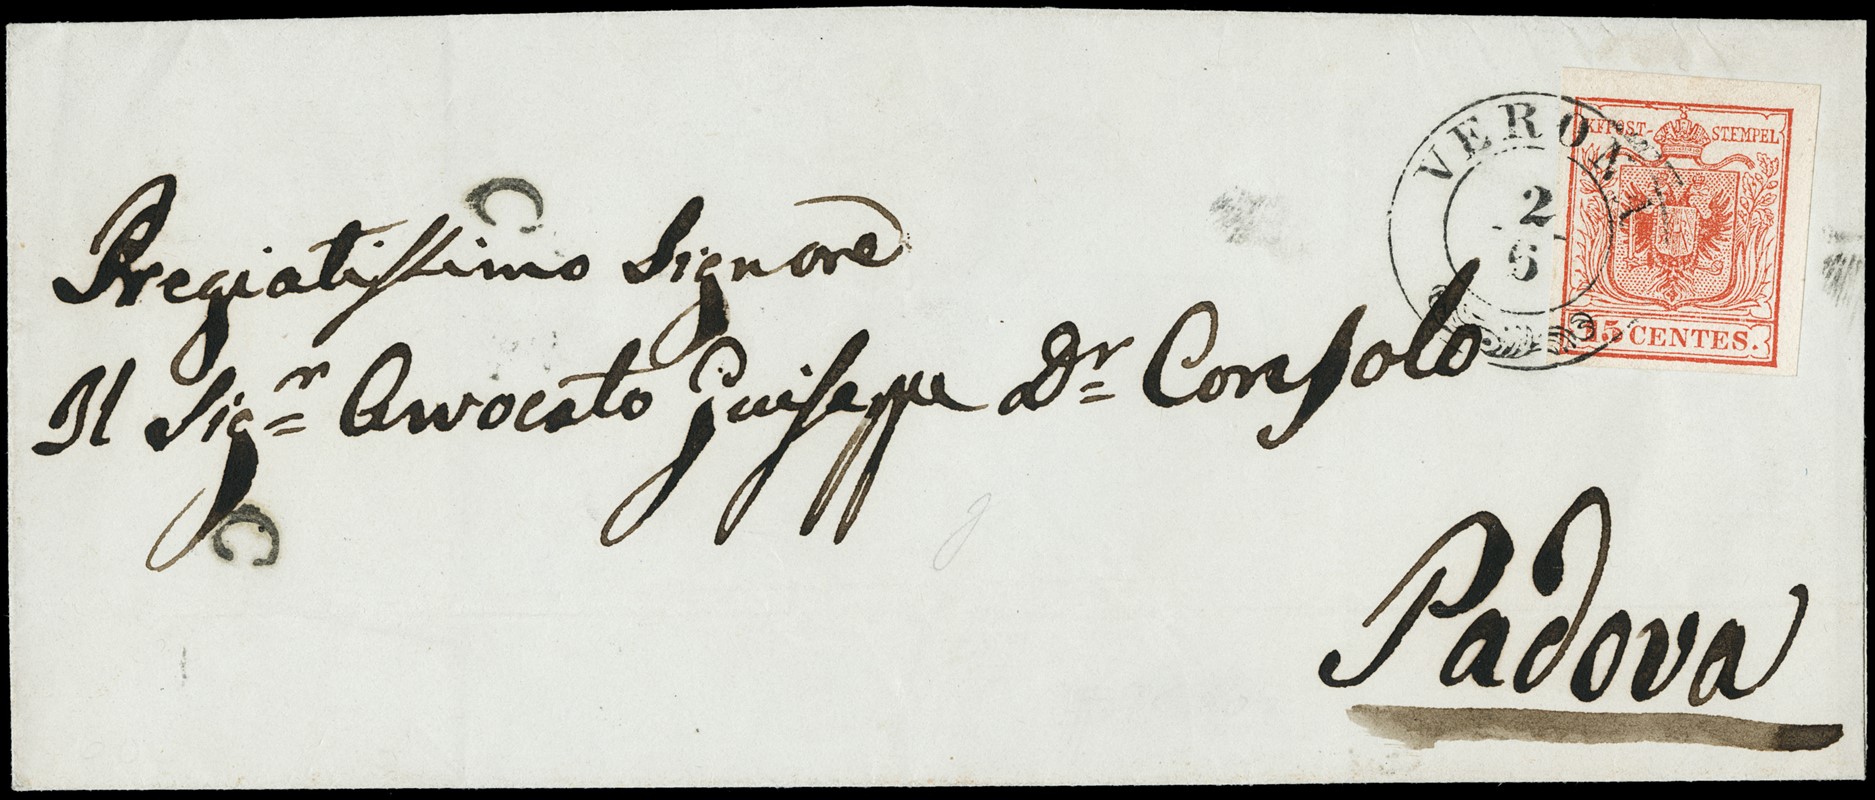 C
VERONA
2
6
KKPOST-STEMPEL
15 CENTES.
Pregiatissimo Signore
Il Sigr Avvocato Giuseppe Dr Consolo
C
Padova